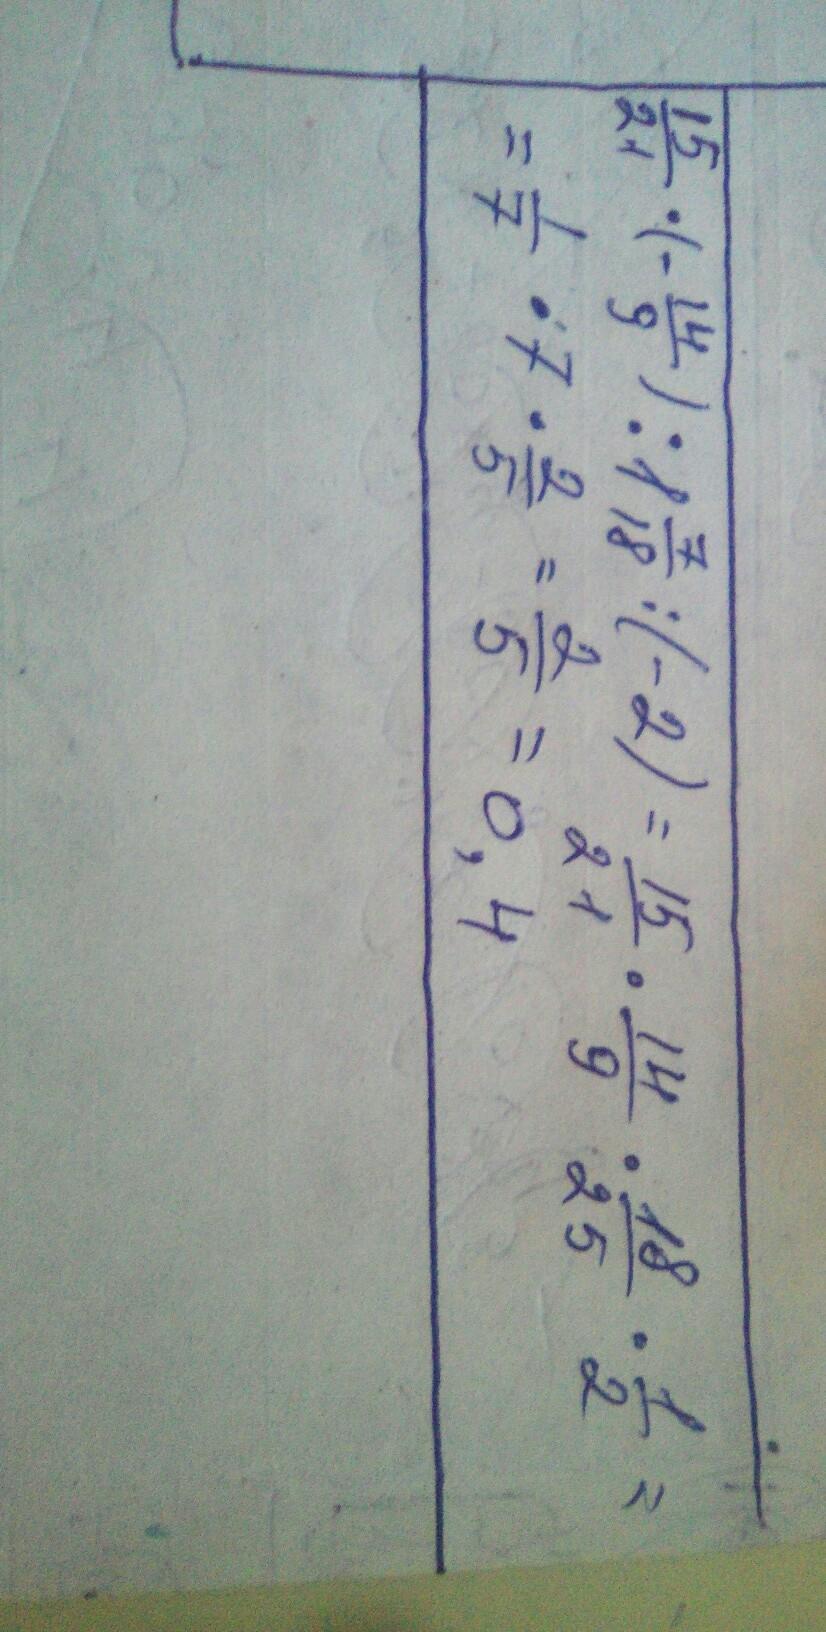 15/21 · (- 14/9) : 1 7/18 : (-2) = 15/21 · 14/9 · 18/25 · 1/2 =
= 1/7 · 7 · 2/5 = 2/5 = 0,4